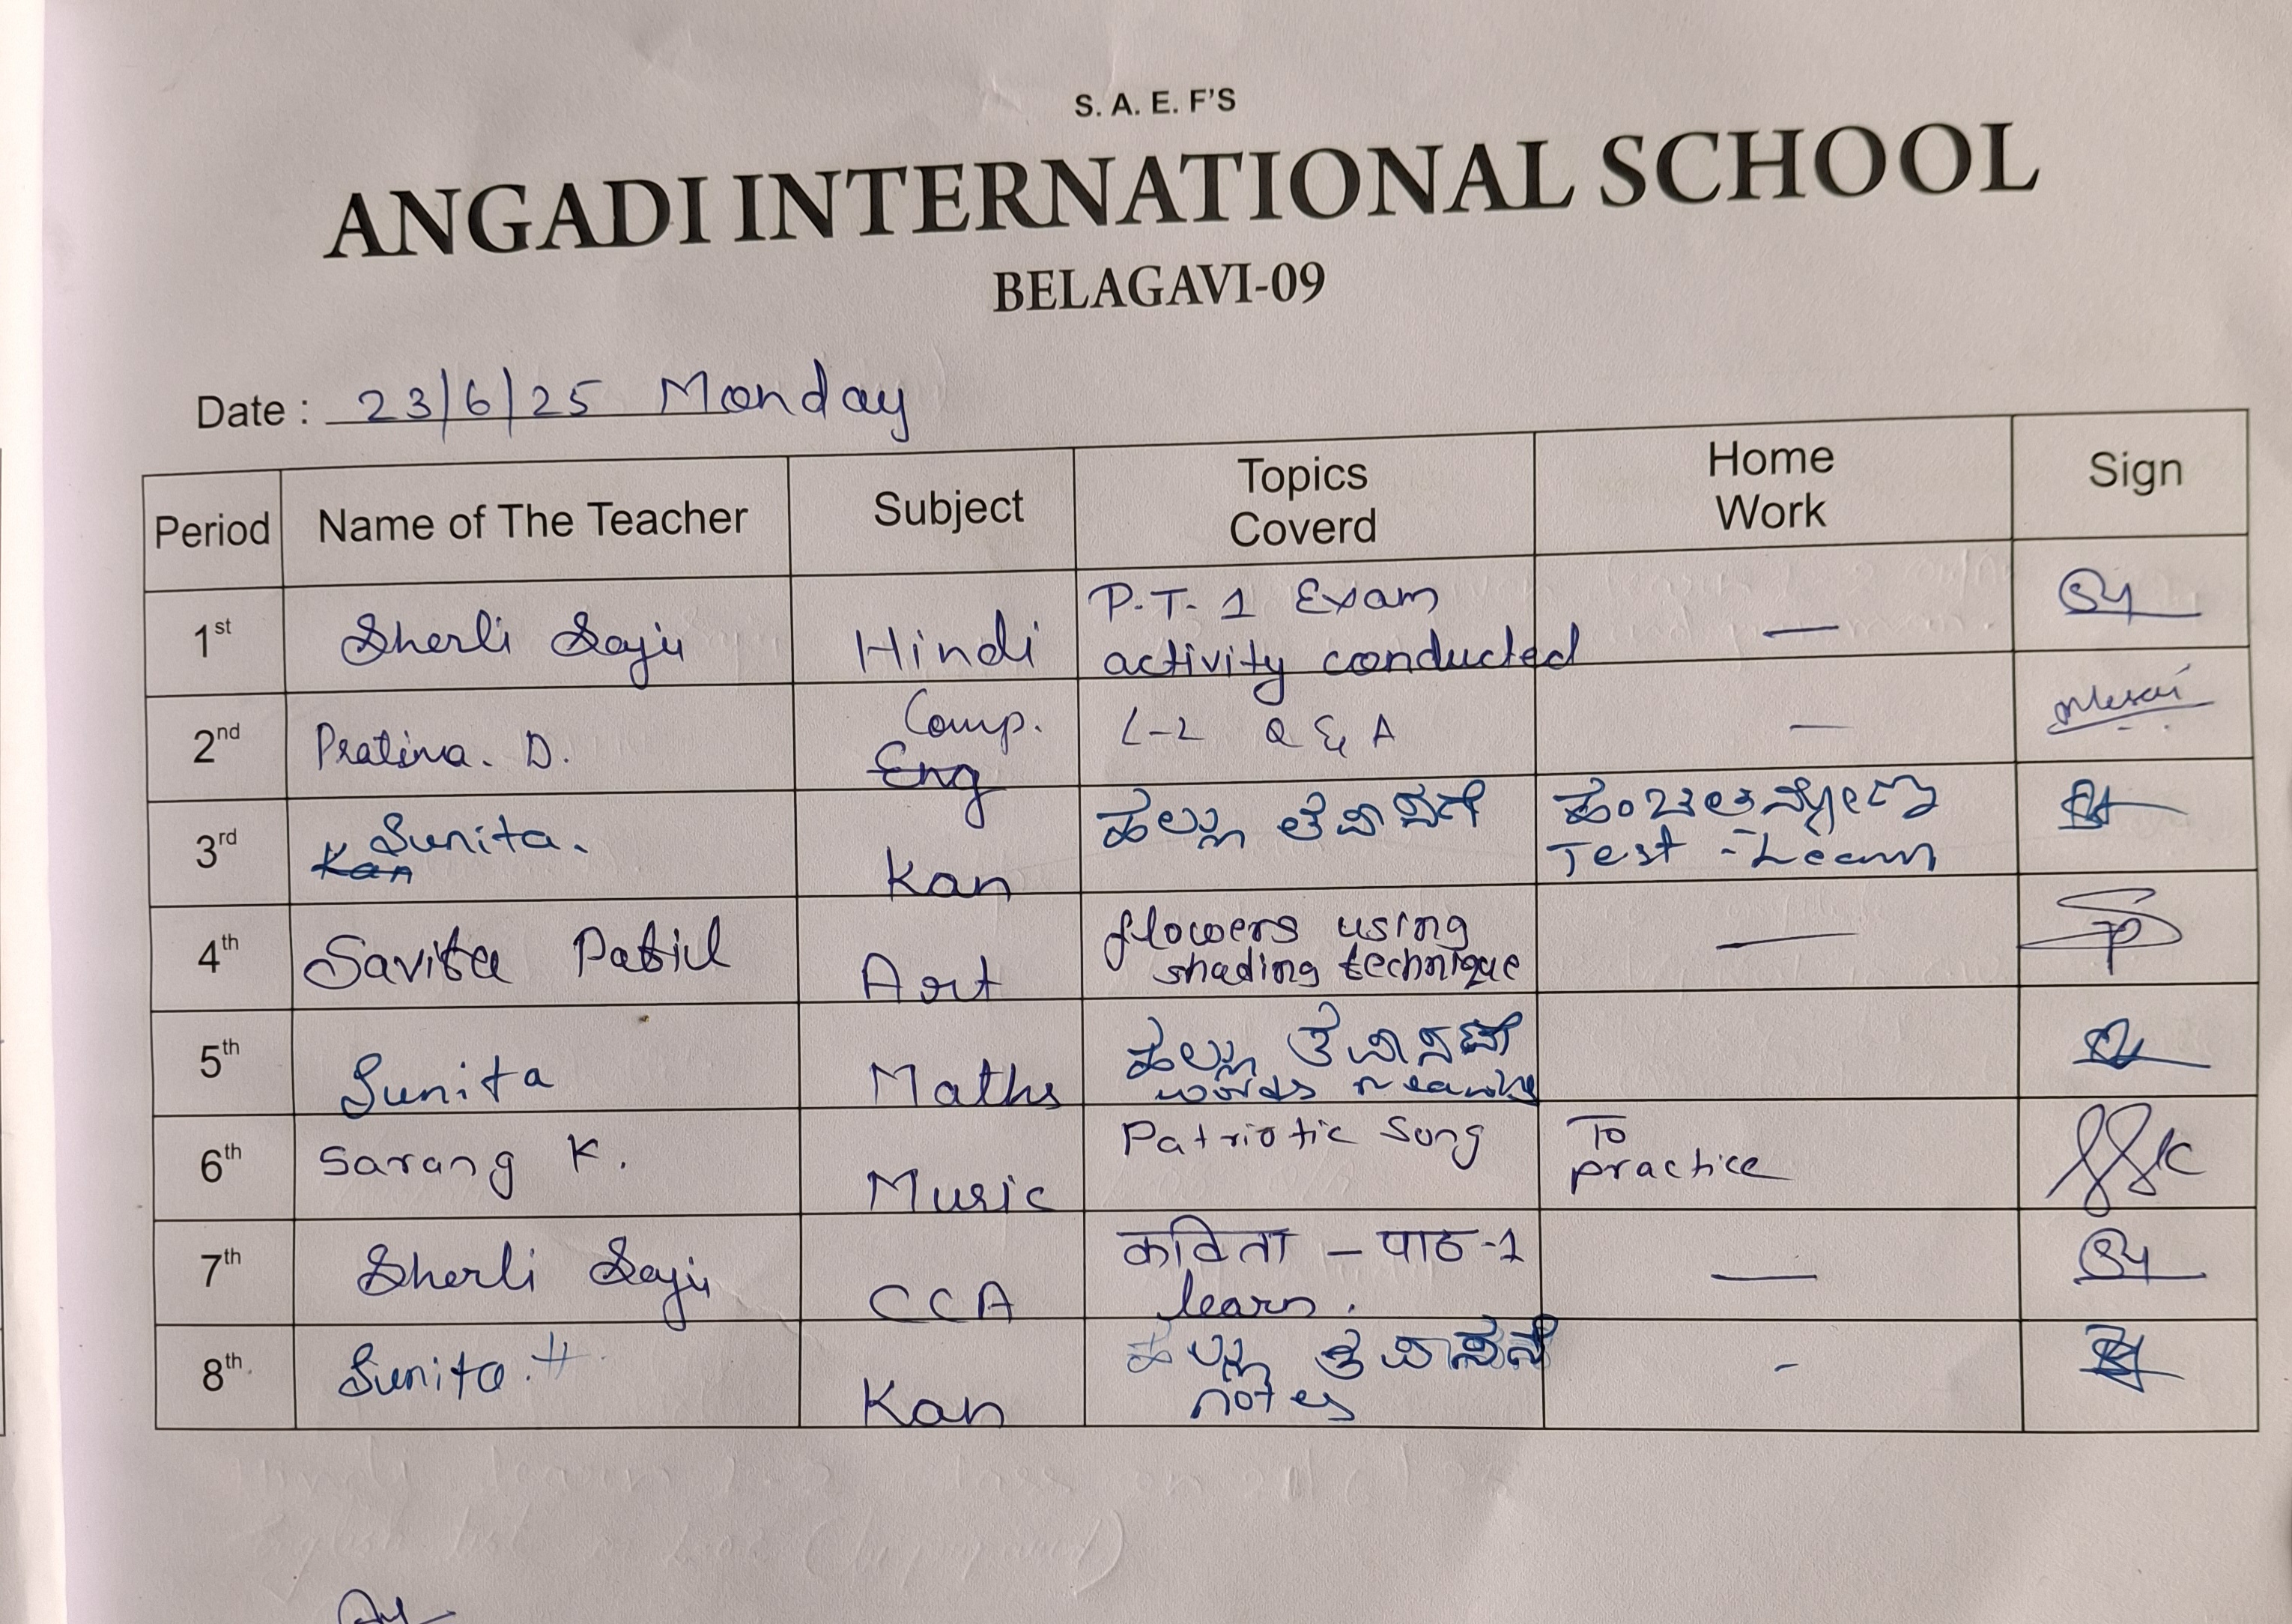 S. A. E. F'S
ANGADI INTERNATIONAL SCHOOL
BELAGAVI-09
Date : 23/6/25 Monday
Period Name of The Teacher Subject Topics Coverd Home Work Sign
1st Sherli Saju Hindi P.T. 1 Exam activity conducted —
2nd Pratima. D. Comp. Eng L-2 Q & A —
3rd Kan Sunita. Kan ಹಲ್ಲು Test - Learn
4th Savita Patil Art flowers using shading technique —
5th Sunita Maths ಹಲ್ಲು words meaning
6th Sarang K. Music Patriotic Song To practice
7th Sherli Saju CCA कविता – पाठ-1 learn. —
8th Sunita. H Kan ಹಲ್ಲು notes -